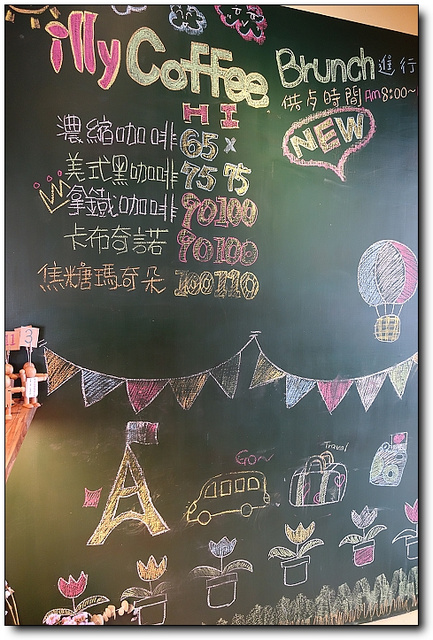 illy Coffee
Brunch 進行
供应時間 Am8:00~
NEW
H I
濃縮咖啡 65 x
美式黑咖啡 75 75
拿鐵咖啡 90 100
卡布奇諾 90 100
焦糖瑪奇朵 100 110
3
Go~
Travel